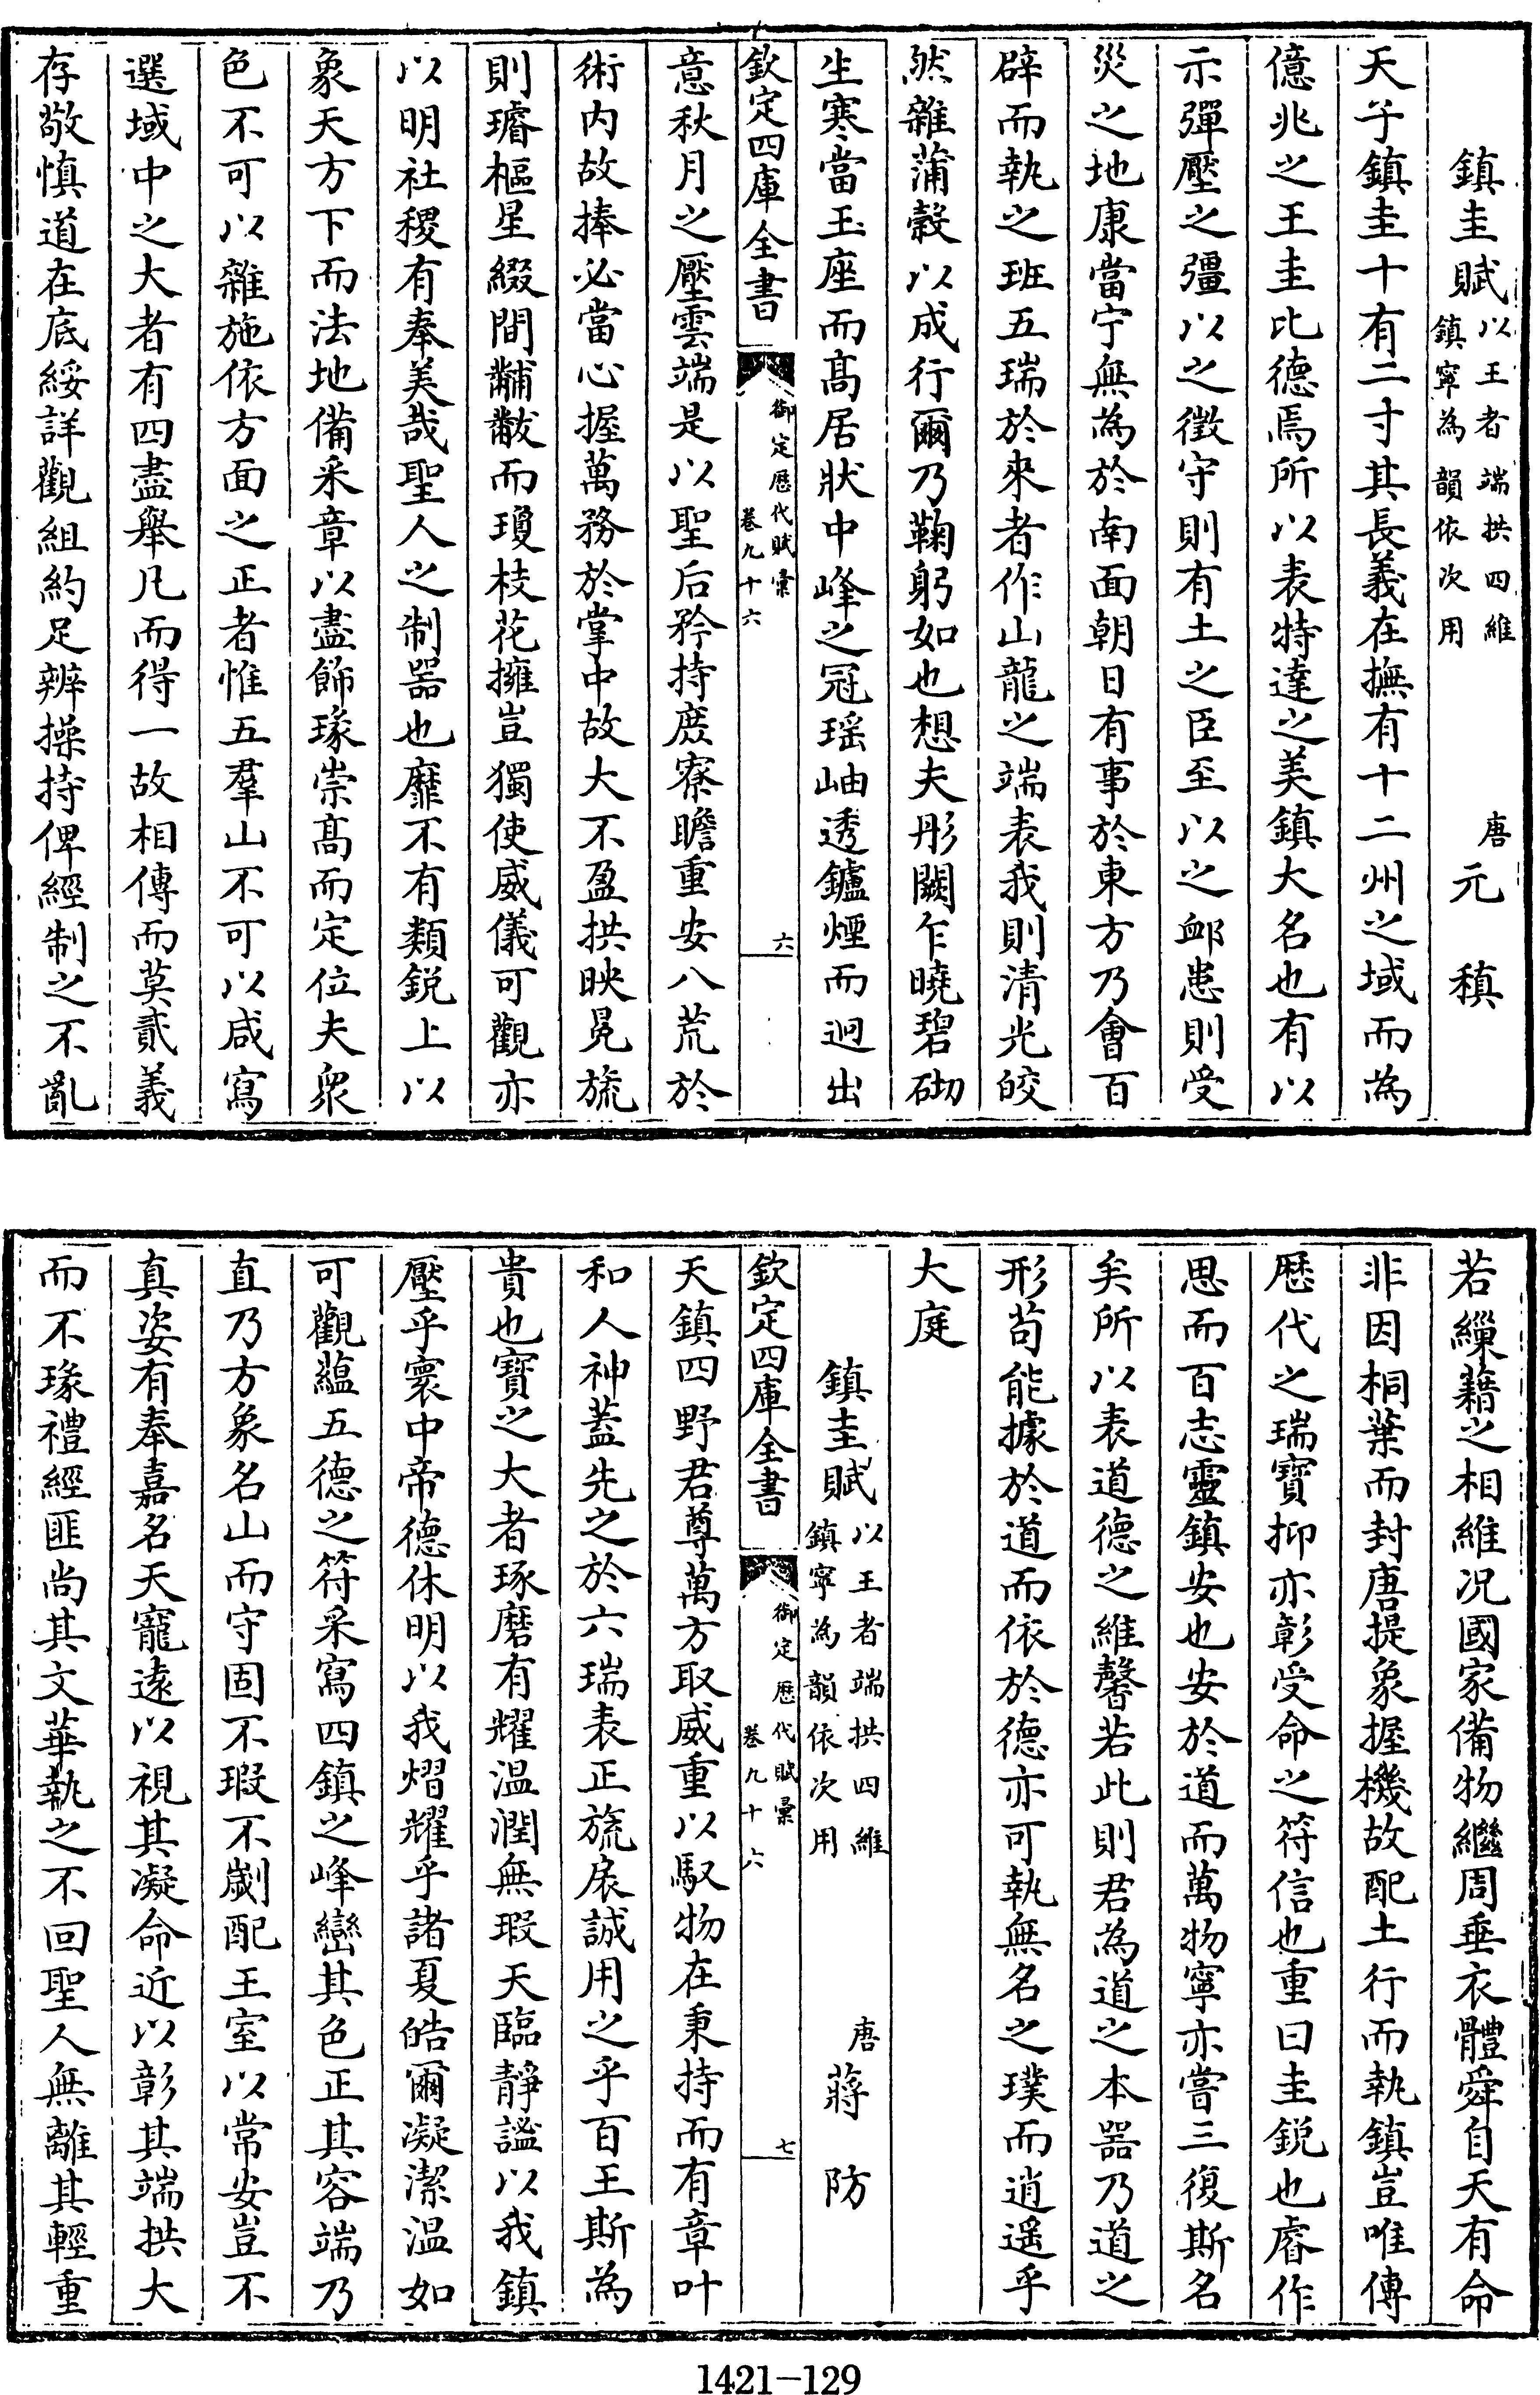 鎮圭賦以王者端拱四維鎮寧為韻依次用 唐元稹
天子鎮圭十有二寸其長義在撫有十二州之域而為
億兆之王圭比德焉所以表特達之美鎮大名也有以
示彈壓之彊以之徵守則有土之臣至以之卹患則受
災之地康當宁無為於南面朝日有事於東方乃會百
辟而執之班五瑞於來者作山龍之端表我則清光皎
然雜蒲穀以成行爾乃鞠躬如也想夫彤闕乍曉碧砌
生寒當玉座而高居狀中峰之冠瑶岫透鑪煙而迥出
欽定四庫全書 御定歷代賦彚 卷九十六 六
意秋月之壓雲端是以聖后矜持庶寮瞻重安八荒於
術内故捧必當心握萬務於掌中故大不盈拱映冕旒
則璿樞星綴間黼黻而瓊枝花擁豈獨使威儀可觀亦
以明社稷有奉美哉聖人之制器也靡不有類鋭上以
象天方下而法地備采章以盡飾瑑崇高而定位夫衆
色不可以雜施依方面之正者惟五羣山不可以咸寫
選域中之大者有四盡舉凡而得一故相傳而莫貳義
存敬慎道在底綏詳觀組約足辨操持俾經制之不亂
若繅藉之相維况國家備物繼周垂衣體舜自天有命
非因桐葉而封唐提象握機故配土行而執鎮豈唯傳
歷代之瑞寶抑亦彰受命之符信也重曰圭鋭也睿作
思而百志靈鎮安也安於道而萬物寧亦嘗三復斯名
矣所以表道德之維馨若此則君為道之本器乃道之
形苟能據於道而依於德亦可執無名之璞而逍遥乎
大庭
鎮圭賦以王者端拱四維鎮寧為韻依次用 唐蔣防
欽定四庫全書 御定歷代賦彙 卷九十六 七
天鎮四野君尊萬方取威重以馭物在秉持而有章叶
和人神蓋先之於六瑞表正旒扆誠用之乎百王斯為
貴也寶之大者琢磨有耀溫潤無瑕天臨靜謐以我鎮
壓乎寰中帝德休明以我熠耀乎諸夏皓爾凝潔温如
可觀蘊五德之符采寫四鎮之峰巒其色正其容端乃
直乃方象名山而守固不瑕不劌配王室以常安豈不
真姿有奉嘉名天寵遠以視其凝命近以彰其端拱大
而不瑑禮經匪尚其文華執之不回聖人無離其輕重
1421-129